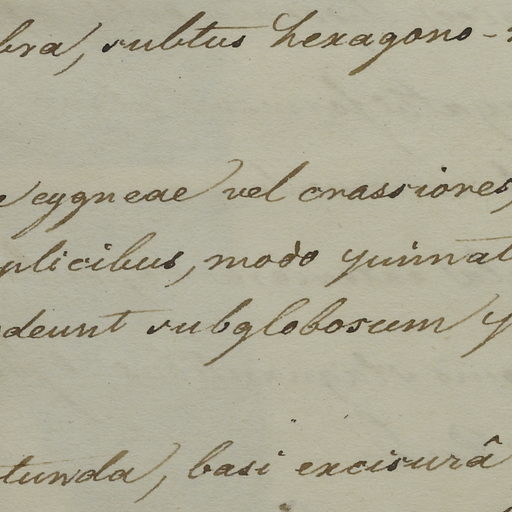 bra, subtus hexagono-
cygneae vel crassiores,
plicibus, modo quinnat
deunt subglobosum
tunda, basi excisurâ